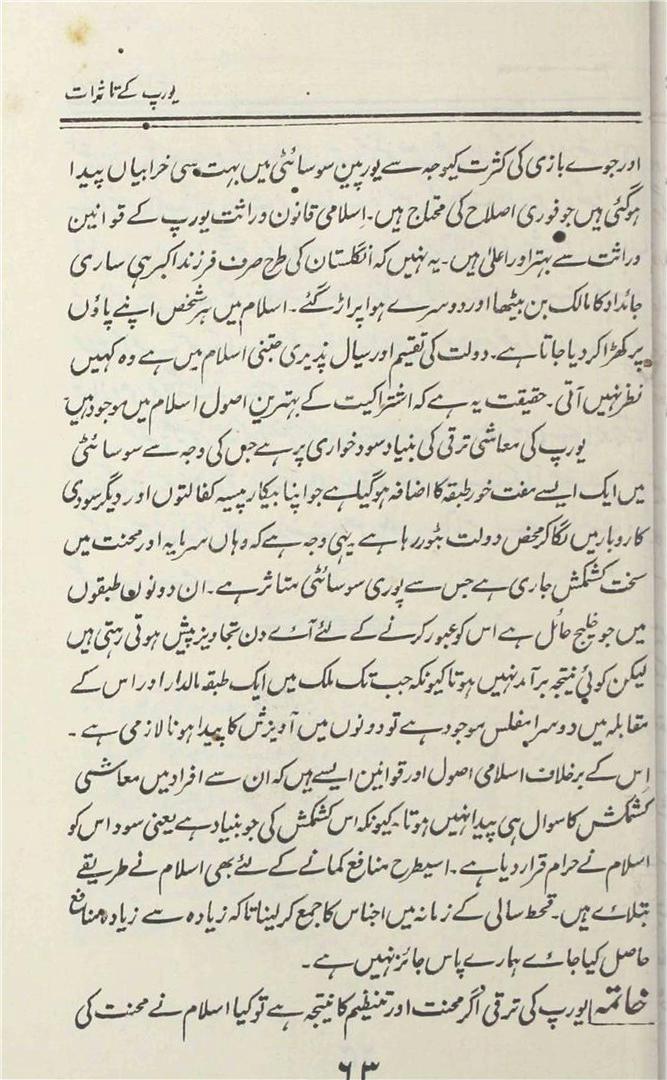 یورپ کے تاثرات
اور جوے بازی کی کثرت کیوجہ سے یورپین سوسائٹی میں بہت سی خرابیاں پیدا
ہوگئی ہیں جو فوری اصلاح کی محتاج ہیں۔ اسلامی قانون وراثت یورپ کے قوانین
وراثت سے بہتر اور اعلیٰ ہیں۔ یہ نہیں کہ انگلستان کی طرح صرف فرزند اکبر ہی ساری
جائداد کا مالک بن بیٹھا اور دوسرے ہوا پر اڑ گئے۔ اسلام میں ہر شخص اپنے پاؤں
پر کھڑا کر دیا جاتا ہے۔ دولت کی تقیم اور سیال پذیری جتنی اسلام میں ہے وہ کہیں
نظر نہیں آتی۔ حقیقت یہ ہے کہ اشتراکیت کے بہترین اصول اسلام میں موجود ہیں
یورپ کی معاشی ترقی کی بنیاد سود خواری پر ہے جس کی وجہ سے سوسائٹی
میں ایک ایسے مفت خور طبقہ کا اضافہ ہوگیا ہے جو اپنا بیکار پیسہ کفالتوں اور دیگر سودی
کاروبار میں لگا کر محض دولت بٹور رہا ہے۔ یہی وجہ ہے کہ وہاں سرمایہ اور محنت میں
سخت کشمکش جاری ہے جس سے پوری سوسائٹی متاثر ہے۔ ان دونوں طبقوں
میں جو خلیج حائل ہے اس کو عبور کرنے کے لئے آے دن تجاویز پیش ہوتی رہتی ہیں
لیکن کوئی نتیجہ برآمد نہیں ہوتا کیونکہ جب تک ملک میں ایک طبقہ مالدار اور اس کے
مقابلہ میں دوسرا مفلس موجود ہے تو دونوں میں آویزش کا پیدا ہونا لازمی ہے۔
اِس کے برخلاف اسلامی اصول اور قوانین ایسے ہیں کہ ان سے افراد میں معاشی
کشمکش کا سوال ہی پیدا نہیں ہوتا۔ کیونکہ اس کشمکش کی جو بنیاد ہے یعنی سود اس کو
اسلام نے حرام قرار دیا ہے۔ اسیطرح منافع کمانے کے لئے بھی اسلام نے طریقے
بتلاے ہیں۔ قحط سالی کے زمانہ میں اجناس کا جمع کر لینا تاکہ زیادہ سے زیادہ منافع
حاصل کیا جاے ہمارے پاس جائز نہیں ہے۔
خاتمہ یورپ کی ترقی اگر محنت اور تنظیم کا نتیجہ ہے تو کیا اسلام نے محنت کی
۶۳